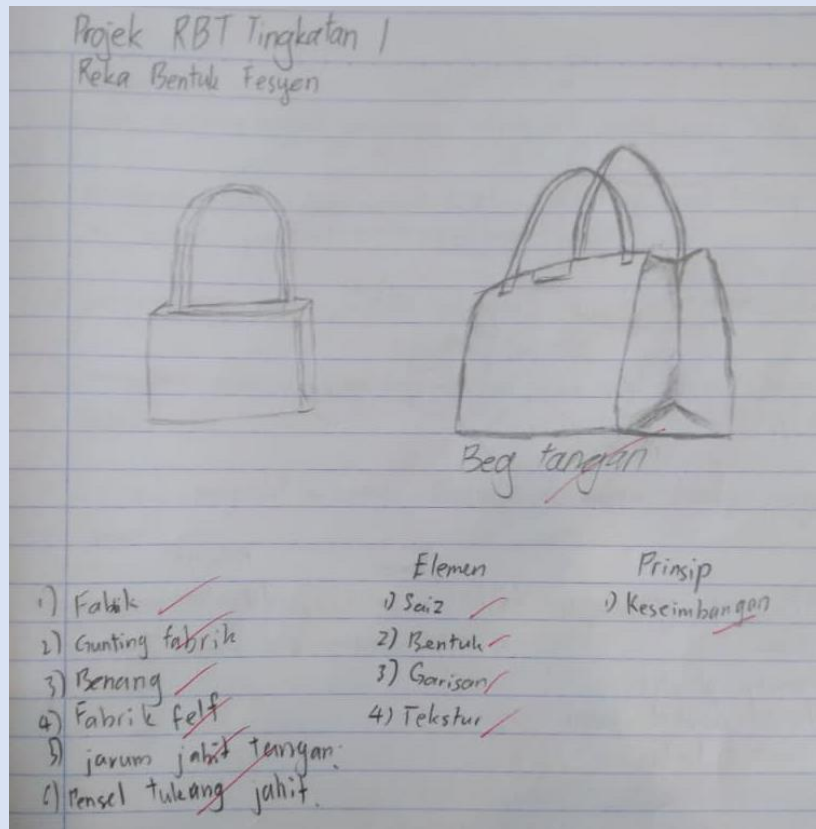 Projek RBT Tingkatan 1
Reka Bentuk Fesyen
Beg tangan
1) Fabik
2) Gunting fabrik
3) Benang
4) Fabrik felf
5) jarum jahit tangan.
6) Pensel tukang jahit.
Elemen
1) Saiz
2) Bentuk
3) Garisan
4) Tekstur
Prinsip
1) Keseimbangan